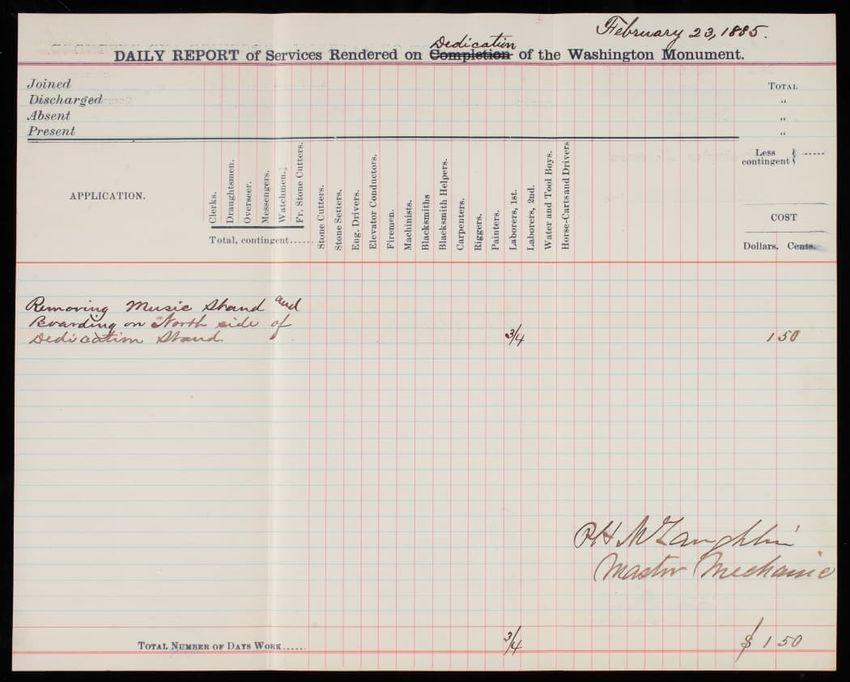 February 23, 1885.
Dedication
DAILY REPORT of Services Rendered on Completion of the Washington Monument.
Joined Total
Discharged "
Absent "
Present "
Less contingent
APPLICATION.
Clerks.
Draughtsmen.
Overseer.
Messengers.
Watchmen.
Fr. Stone Cutters.
Total, contingent......
Stone Cutters.
Stone Setters.
Eng. Drivers.
Elevator Conductors.
Firemen.
Machinists.
Blacksmiths
Blacksmith Helpers.
Carpenters.
Riggers.
Painters.
Laborers, 1st.
Laborers, 2nd.
Water and Tool Boys.
Horse-Carts and Drivers
COST
Dollars. Cents.
Removing Music Stand and
Boarding on North side of
Dedication Stand. 3/4 1 50
P H McLaughlin
Master Mechanic
Total Number of Days Work...... 3/4 $ 1 50